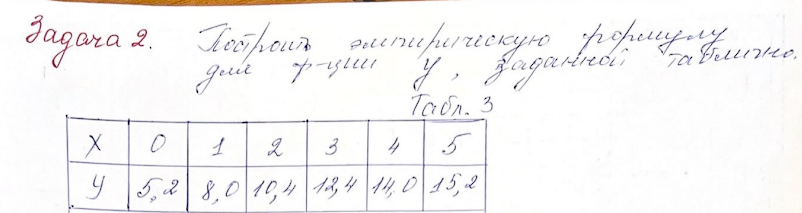 Задача 2. Построить эмпирическую формулу
для ф-ции y, заданной таблично.
Табл. 3
X 0 1 2 3 4 5
y 5,2 8,0 10,4 12,4 14,0 15,2